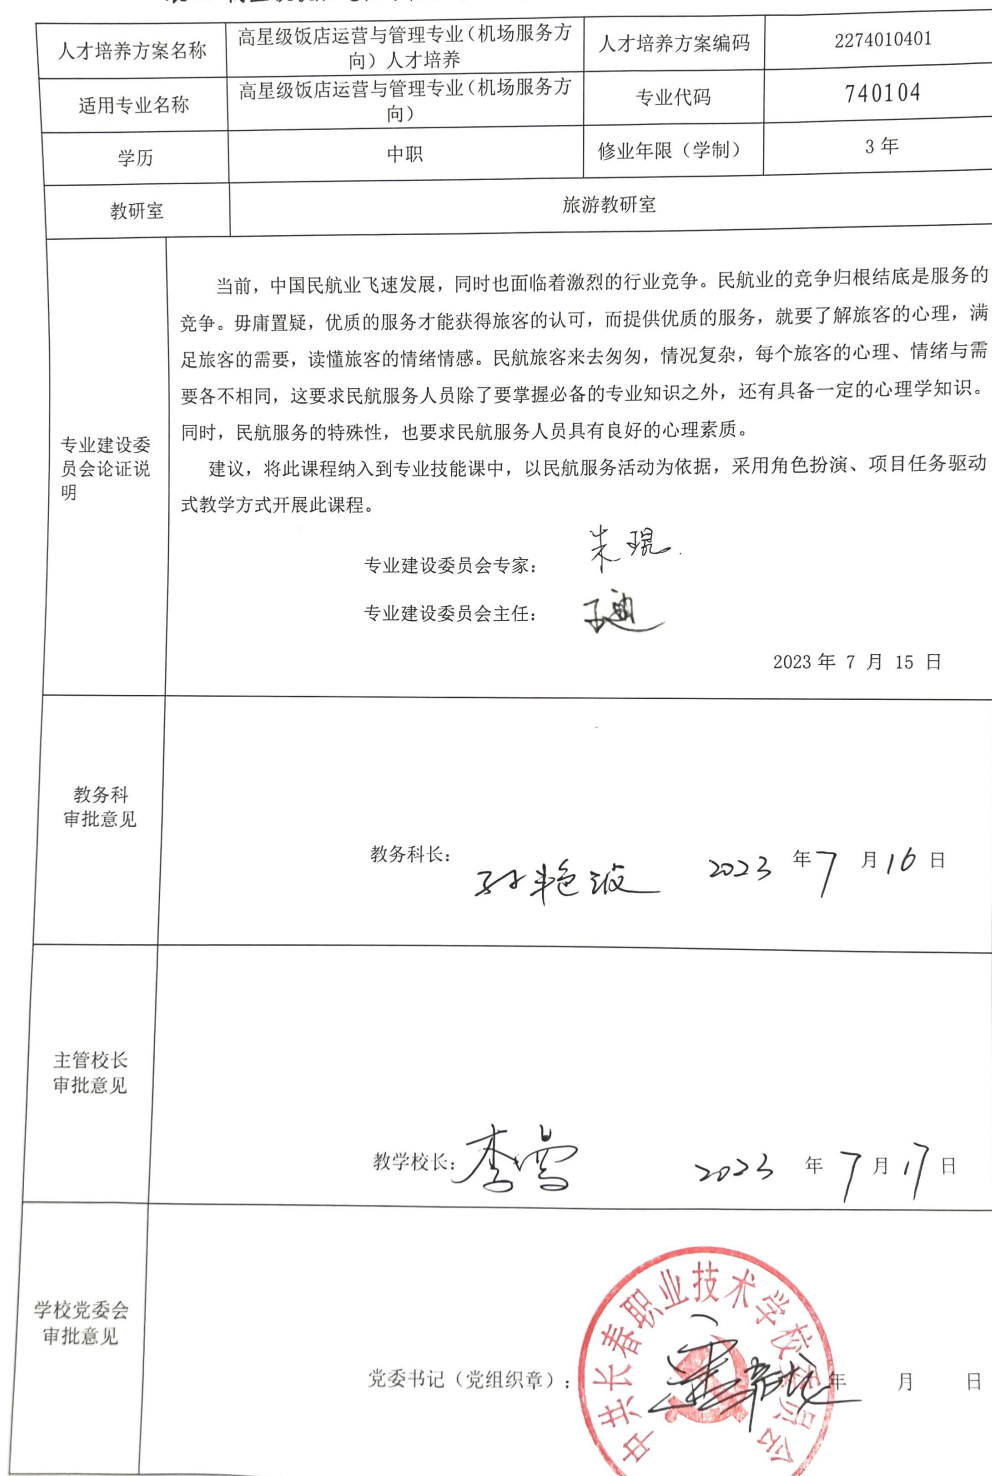 人才培养方案名称 高星级饭店运营与管理专业（机场服务方向）人才培养 人才培养方案编码 2274010401
适用专业名称 高星级饭店运营与管理专业（机场服务方向） 专业代码 740104
学历 中职 修业年限（学制） 3 年
教研室 旅游教研室
专业建设委员会论证说明
当前，中国民航业飞速发展，同时也面临着激烈的行业竞争。民航业的竞争归根结底是服务的
竞争。毋庸置疑，优质的服务才能获得旅客的认可，而提供优质的服务，就要了解旅客的心理，满
足旅客的需要，读懂旅客的情绪情感。民航旅客来去匆匆，情况复杂，每个旅客的心理、情绪与需
要各不相同，这要求民航服务人员除了要掌握必备的专业知识之外，还有具备一定的心理学知识。
同时，民航服务的特殊性，也要求民航服务人员具有良好的心理素质。
建议，将此课程纳入到专业技能课中，以民航服务活动为依据，采用角色扮演、项目任务驱动
式教学方式开展此课程。
专业建设委员会专家： 朱琨
专业建设委员会主任：
2023 年 7 月 15 日
教务科
审批意见
教务科长： 孙艳波 2023 年 7 月 16 日
主管校长
审批意见
教学校长： 李莺 2023 年 7 月 17 日
学校党委会
审批意见
中共长春职业技术学校委员会
党委书记（党组织章）： 年 月 日